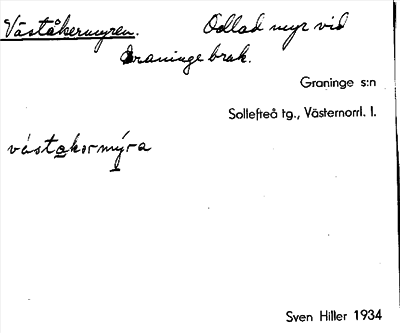 Väståkermyren. Odlad myr vid
Graninge bruk.
Graninge s:n
Sollefteå tg., Västernorrl. l.
västakermýra
Sven Hiller 1934